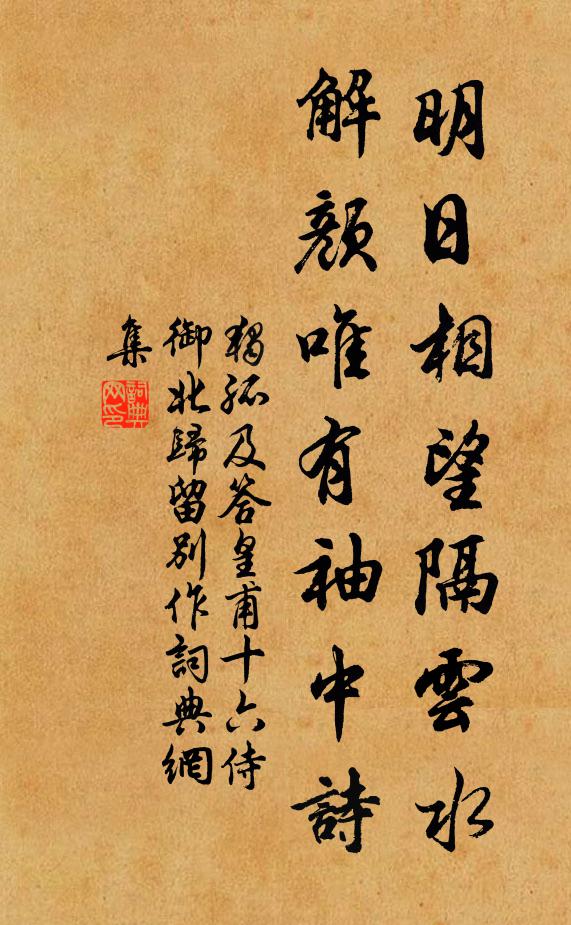 明日相望隔雲水
解顏唯有袖中詩
獨孤及答皇甫十六侍
御北歸留別作詞典網
集
詞典網印